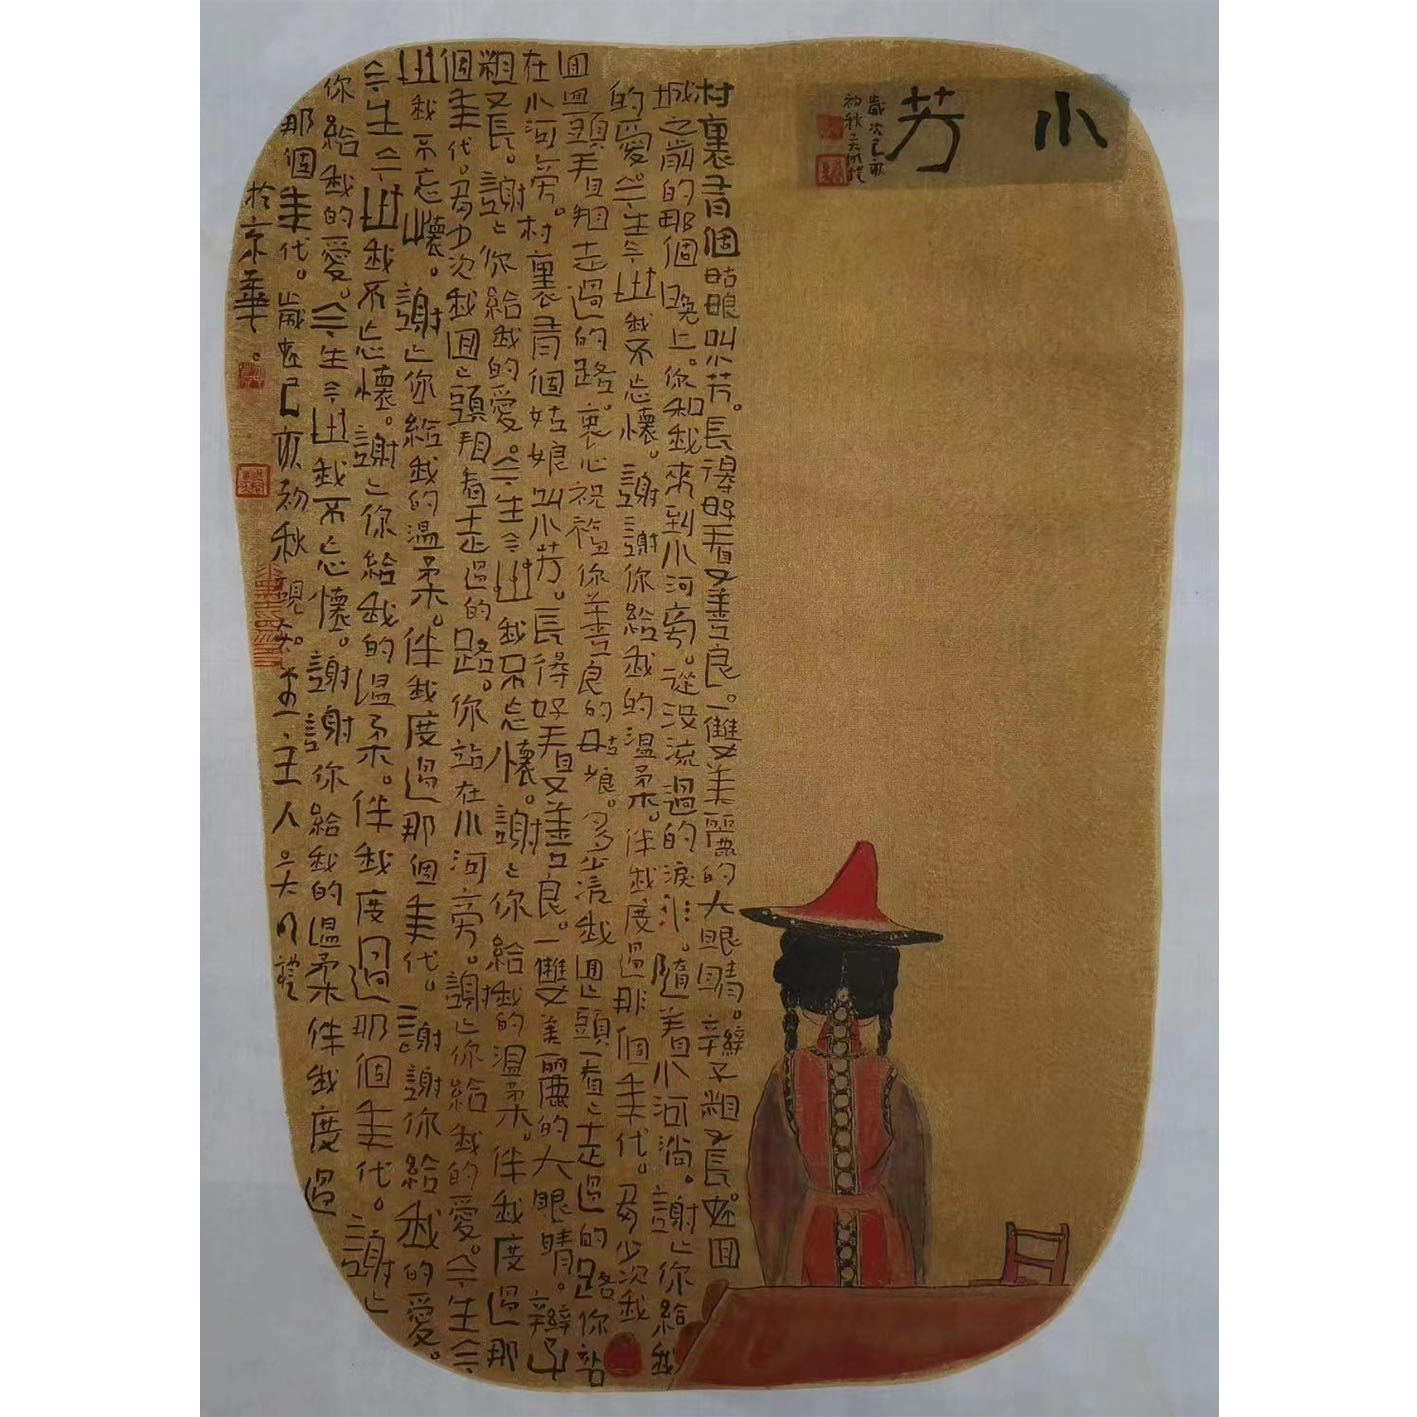 小芳
歲次己亥
初秋
村裏有個姑娘叫小芳。長得好看又善良。一雙美麗的大眼睛。辮子粗又長。在回
城之前的那個晚上。你和我來到小河旁。從没流過的淚水。隨着小河淌。謝〻你給我
的愛。今生今世我不忘懷。謝謝你給我的温柔。伴我度過那個年代。多少次我
回回頭看看走過的路。衷心祝福你善良的姑娘。多少次我回〻頭看〻走過的路你站
在小河旁。村裏有個姑娘叫小芳。長得好看又善良。一雙美麗的大眼睛。辮子
粗又長。謝〻你給我的愛。今生今世我不忘懷。謝〻你給我的温柔。伴我度過那
個年代。多少次我回〻頭看看走過的路。你站在小河旁。謝〻你給我的愛。今生今
世我不忘懷。謝〻你給我的温柔。伴我度過那個年代。謝謝你給我的愛。
今生今世我不忘懷。謝〻你給我的温柔。伴我度過那個年代。謝〻
你給我的愛。今生今世我不忘懷。謝謝你給我的温柔伴我度過
那個年代。歲在己亥初秋主人
於京華。